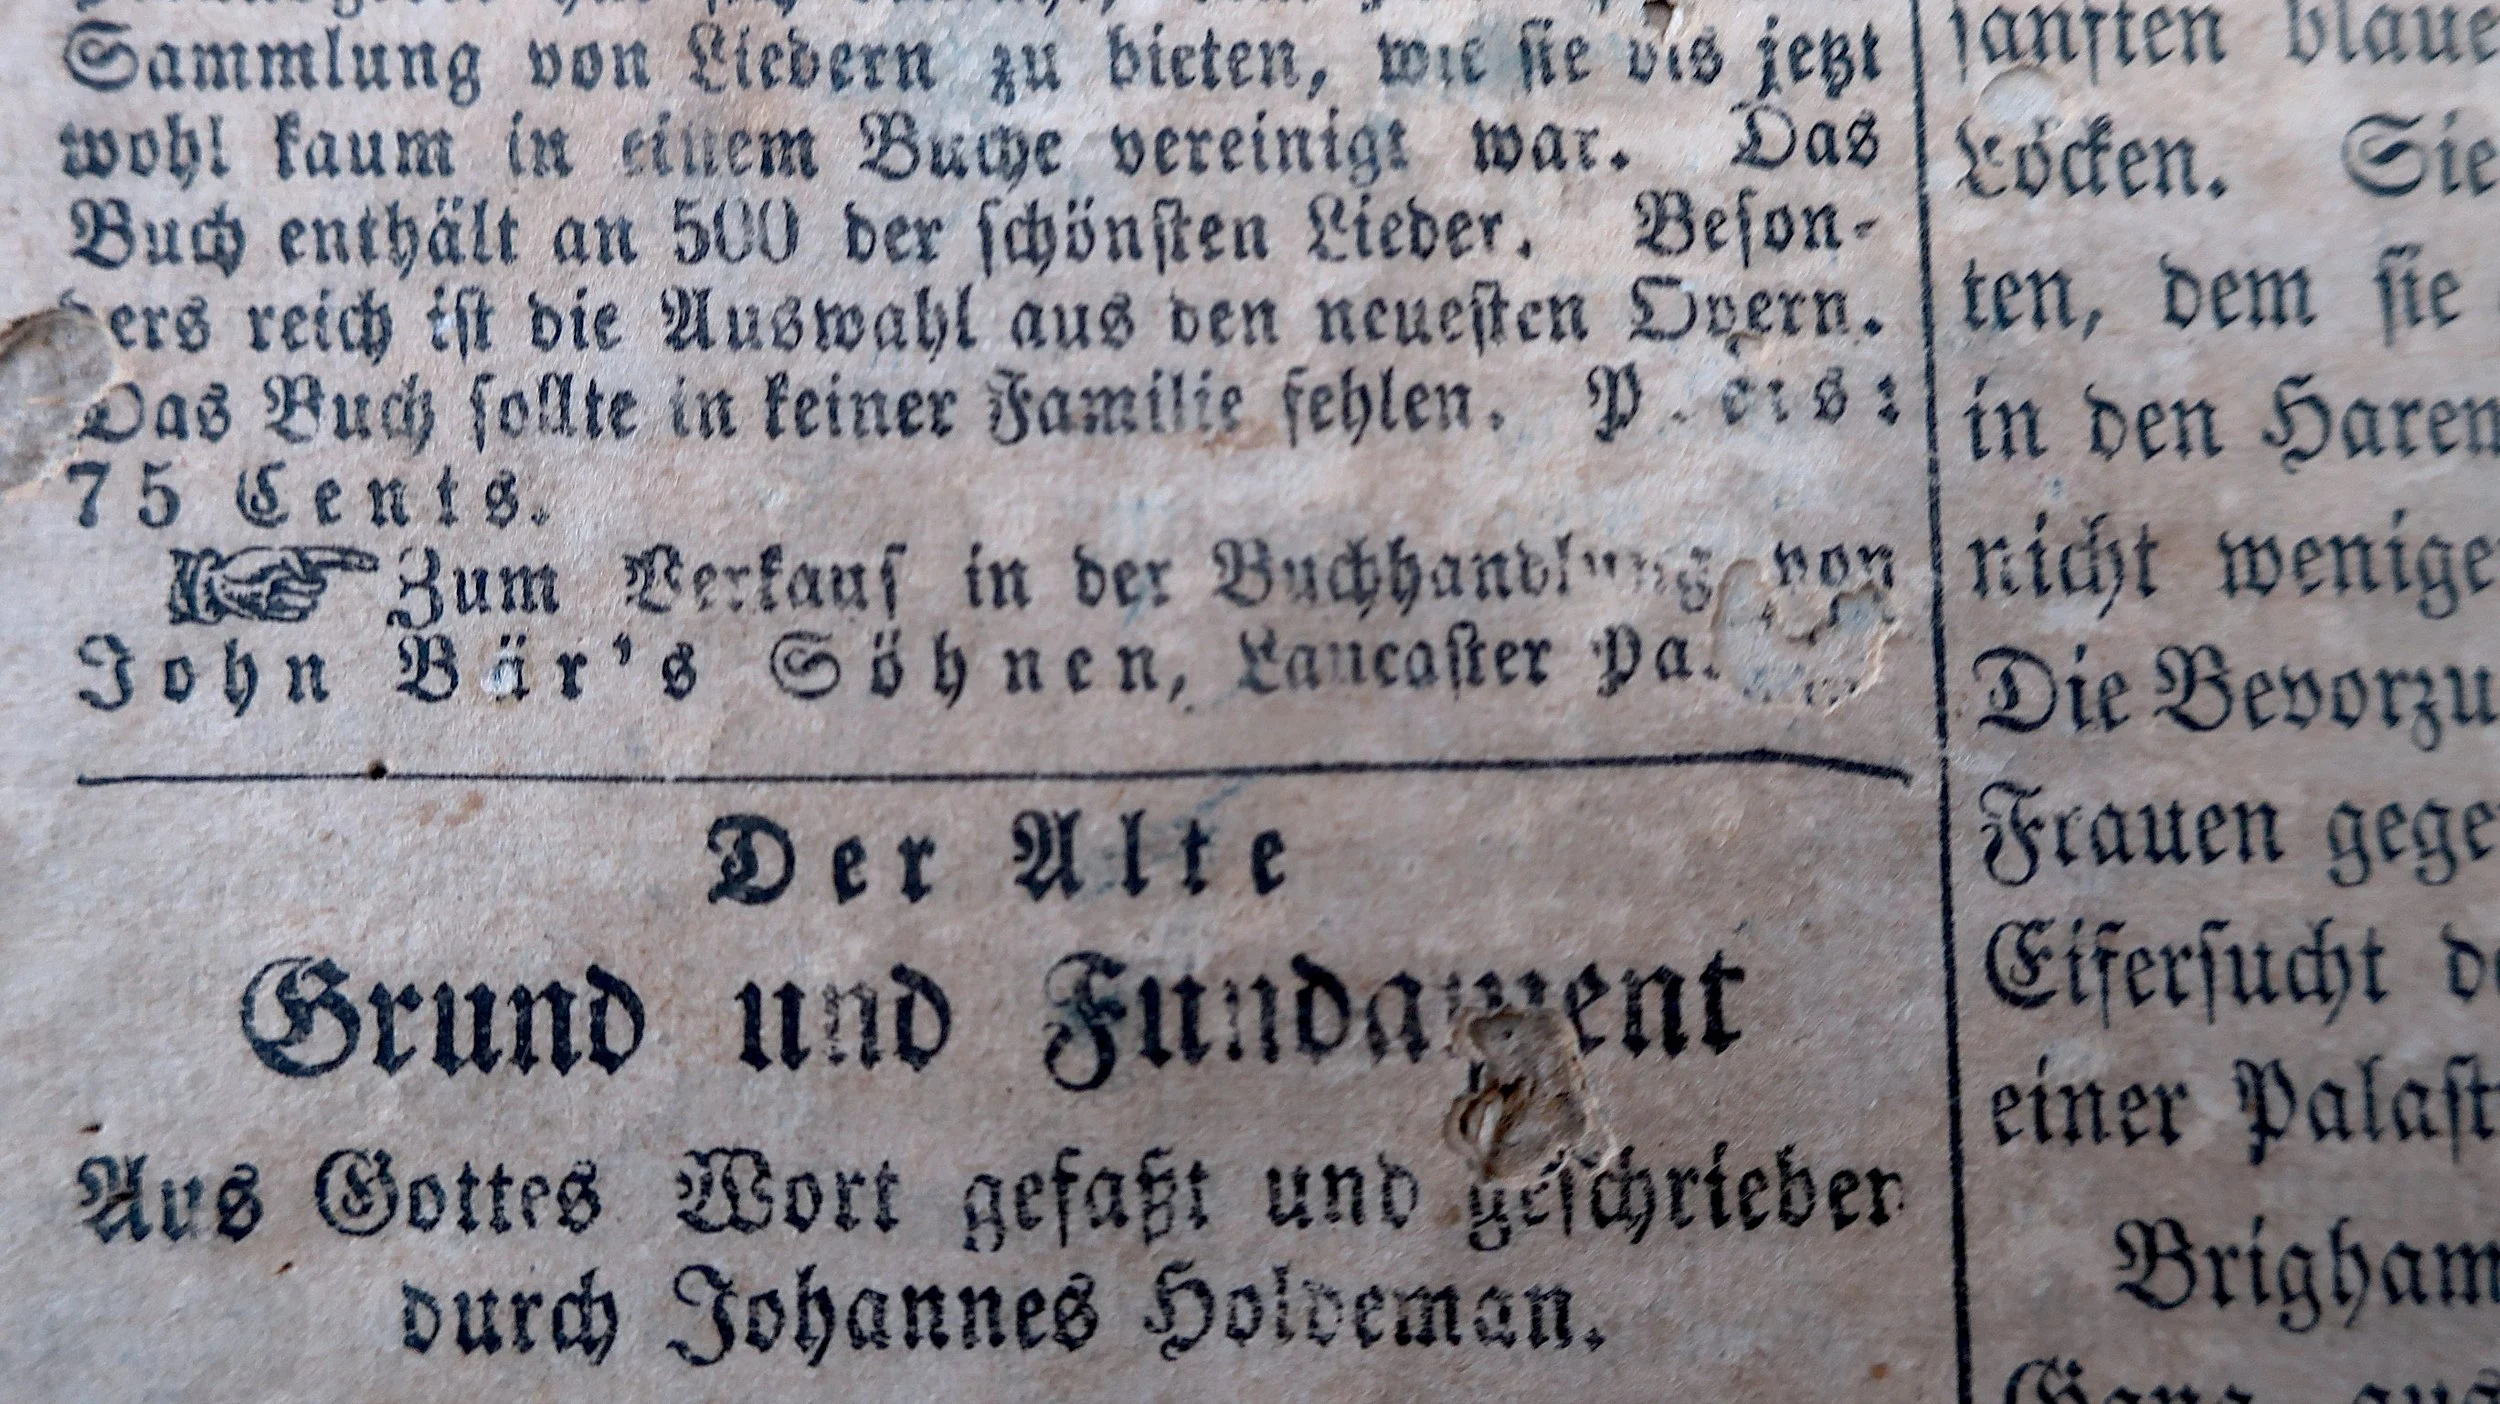 Sammlung von Liedern zu bieten, wie sie bis jetzt
wohl kaum in einem Buche vereinigt war. Das
Buch enthält an 500 der schönsten Lieder. Beson-
ders reich ist die Auswahl aus den neuesten Opern.
Das Buch sollte in keiner Familie fehlen. Preis:
75 Cents.
☞ Zum Verkauf in der Buchhandlung von
John Bär's Söhnen, Lancaster Pa.
Der Alte
Grund und Fundament
Aus Gottes Wort gefaßt und geschrieben
durch Johannes Holdeman.
sanften
Löcken. Sie
ten, dem sie
in den
nicht
Die
Frauen
Eifersucht
einer
Brigham